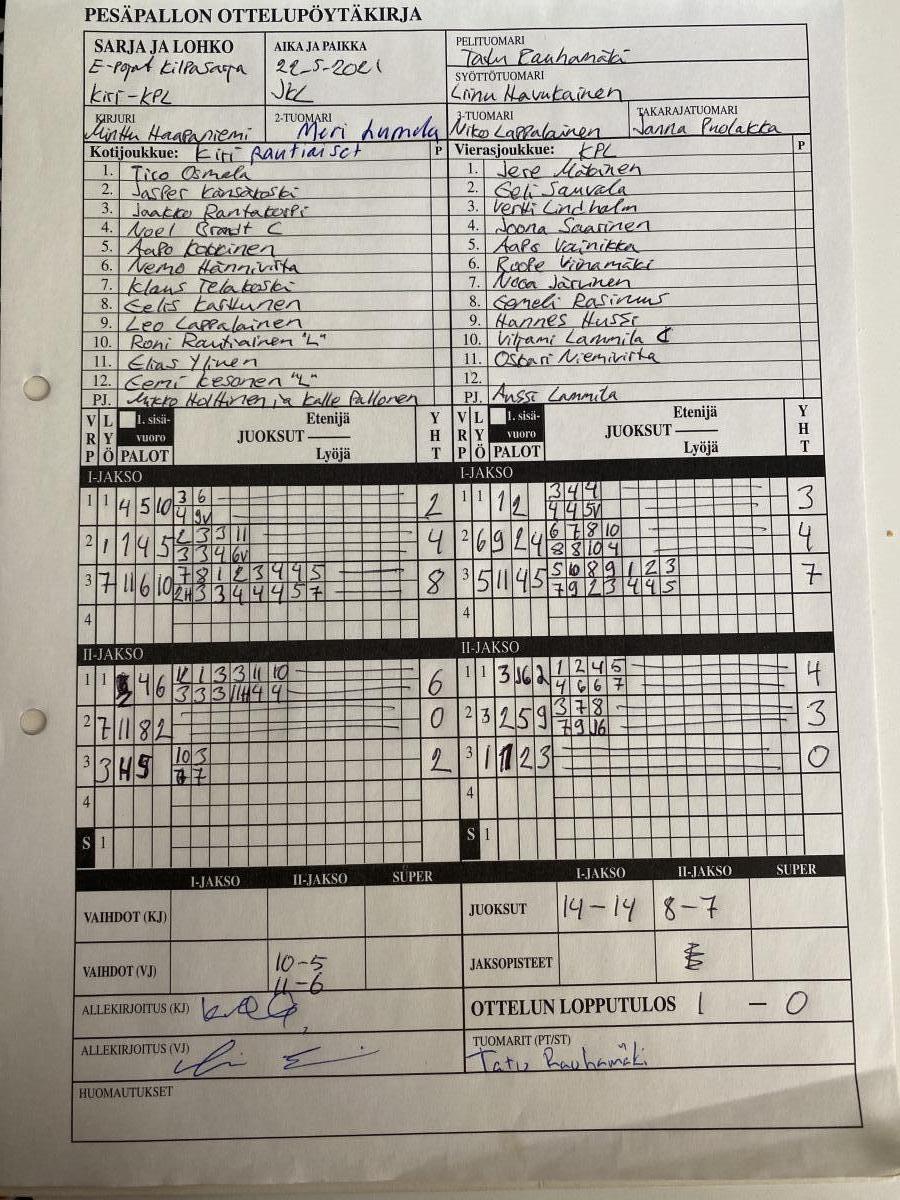 PESÄPALLON OTTELUPÖYTÄKIRJA
SARJA JA LOHKO
E-pojat Kilpasarja
Kiri-KPL
AIKA JA PAIKKA
22-5-2021
JKL
PELITUOMARI
Tatu Rauhamäki
SYÖTTÖTUOMARI
Linu Havukainen
KIRJURI
Minttu Haapaniemi
2-TUOMARI
Meri Lumela
3-TUOMARI
Niko Lappalainen
TAKARAJATUOMARI
Janna Puolakka
Kotijoukkue: Kiri Rautiaiset P
1. Tico Osmela
2. Jasper Kansakoski
3. Jaakko Rantakorpi
4. Noel Brandt C
5. Aapo Kokkinen
6. Nemo Hännivirta
7. Klaus Telakoski
8. Eelis Karttunen
9. Leo Lappalainen
10. Roni Rautiainen "L"
11. Elias Ylinen
12. Eemi Kesonen "L"
PJ. Mikko Holttinen ja Kalle Pallonen
Vierasjoukkue: KPL P
1. Jere Mätäinen
2. Eeli Sauvala
3. Vertti Lindholm
4. Joona Saarinen
5. Aapo Vainikka
6. Roope Viinamäki
7. Nooa Järvinen
8. Eemeli Rasinmus
9. Hannes Hussi
10. Viljami Lammila C
11. Oskari Niemivirta
12.
PJ. Anssi Lammila
VRP LYÖ 1. sisävuoro PALOT JUOKSUT Etenijä Lyöjä YHT
VRP LYÖ 1. sisävuoro PALOT JUOKSUT Etenijä Lyöjä YHT
I-JAKSO
1 1 4 5 10 3 6 2
4 9V
2 1 1 4 5 2 3 3 11 4
3 3 4 6V
3 7 11 6 10 7 8 1 2 3 4 4 5 8
2H 3 3 4 4 4 5 7
4
I-JAKSO
1 1 1 2 3 4 4 3
4 4 5V
2 6 9 2 4 6 7 8 10 4
8 8 10 4
3 5 11 4 5 5 10 8 9 1 2 3 7
7 9 2 3 4 4 5
4
II-JAKSO
1 1 4 6 1 3 3 11 10 6
3 3 3 11H 4 4
2 7 11 8 2 0
3 3 10 3 2
7
4
S 1
II-JAKSO
1 1 3 2 1 2 4 5 4
4 6 6 7
2 3 2 5 9 3 7 8 3
7 9
3 1 1 2 3 0
4
S 1
I-JAKSO II-JAKSO SUPER
VAIHDOT (KJ)
VAIHDOT (VJ) 10-5
11-6
ALLEKIRJOITUS (KJ)
ALLEKIRJOITUS (VJ)
HUOMAUTUKSET
I-JAKSO II-JAKSO SUPER
JUOKSUT 14-14 8-7
JAKSOPISTEET
OTTELUN LOPPUTULOS 1 - 0
TUOMARIT (PT/ST)
Tatu Rauhamäki